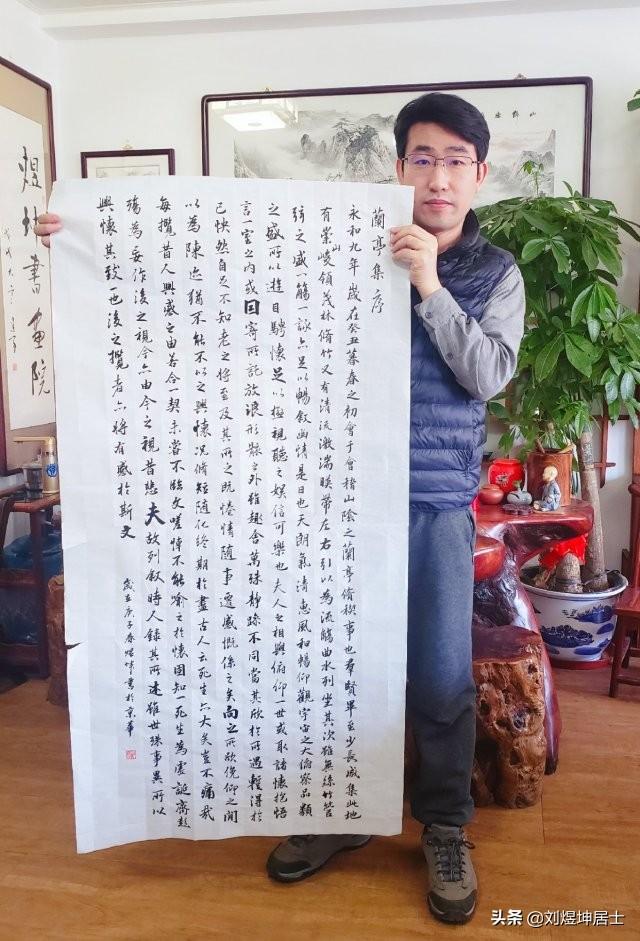 蘭亭集序
永和九年歲在癸丑暮春之初會于會稽山陰之蘭亭脩稧事也羣賢畢至少長咸集此地
有崇山峻領茂林脩竹又有清流激湍暎帶左右引以為流觴曲水列坐其次雖無絲竹管
弦之盛一觴一詠亦足以暢敘幽情是日也天朗氣清惠風和暢仰觀宇宙之大俯察品類
之盛所以遊目騁懷足以極視聽之娛信可樂也夫人之相與俯仰一世或取諸懷抱悟
言一室之內或因寄所託放浪形骸之外雖趣舍萬殊靜躁不同當其欣於所遇蹔得於
己快然自足不知老之將至及其所之既惓情隨事遷感慨係之矣向之所欣俛仰之間
以為陳迹猶不能不以之興懷況脩短隨化終期於盡古人云死生亦大矣豈不痛哉
每攬昔人興感之由若合一契未嘗不臨文嗟悼不能喻之於懷固知一死生為虛誕齊彭
殤為妄作後之視今亦由今之視昔悲夫故列敘時人錄其所述雖世殊事異所以
興懷其致一也後之攬者亦將有感於斯文
歲在庚子春煜坤書於京華
煜坤書畫院
头条 @刘煜坤居士